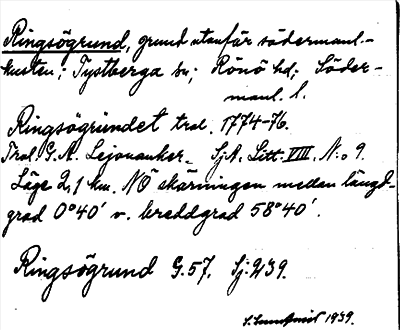 Ringsögrund, grund utanför södermanl.-
kusten; Tystberga sn; Rönö hd; Söder-
manl. l.
Ringsögrundet trol. 1774-76.
Trol. G. A. Lejonanker. SjA. Litt. VIII. N:o 9.
Läge 2,1 km. NÖ skärningen medan längd-
grad 0°40' v. breddgrad 58°40'.
Ringsögrund G.57. Sj: 2/39.
S. 1939.